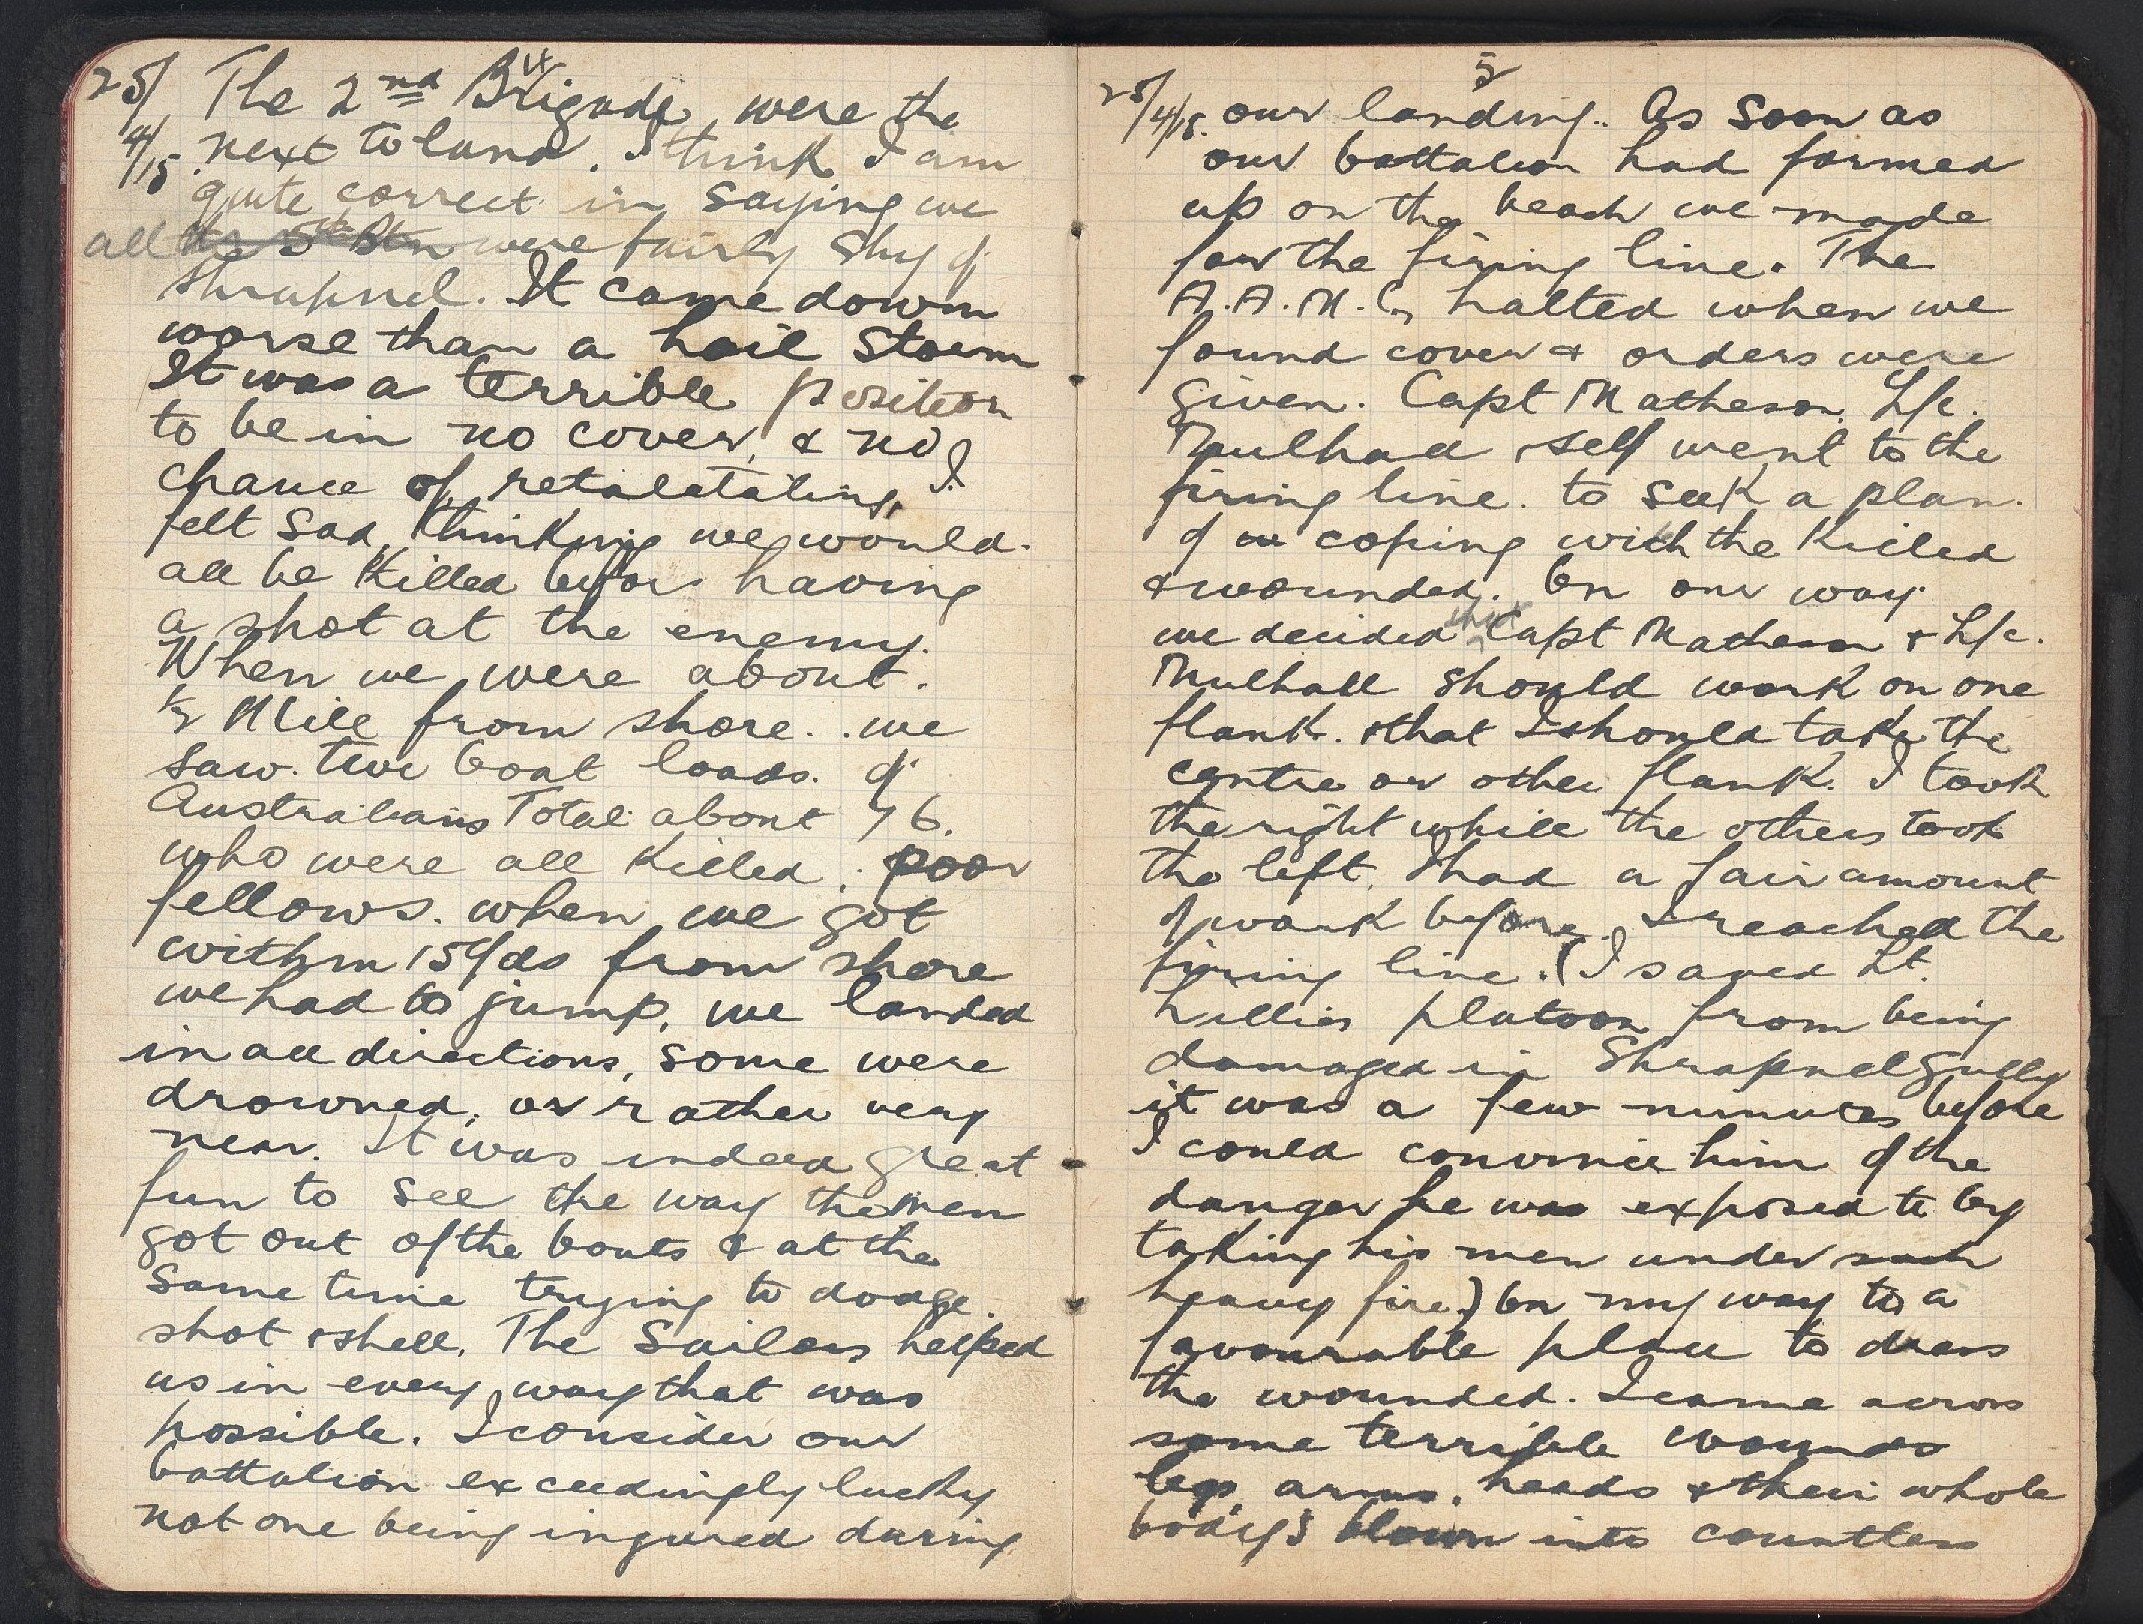 4
25/4/15. The 2nd Brigade were the
next to land. I think I am
quite correct in saying we
all the 5th Btn were fairly shy of
shrapnel. It came down
worse than a hail storm
It was a terrible position
to be in no cover, & no
chance of retalatating, I
felt sad, thinking we would.
all be killed befor having
a shot at the enemy.
When we were about.
½ Mile from shore.. we
saw. two boat loads. of
Australians Total about 76.
who were all killed. poor
fellows. when we got
within 15yds from shore
we had to jump, we landed
in all directions, some were
drowned, or rather very
near. It was indeed great
fun to see the way the men
got out of the boats & at the
same time trying to dodge.
shot & shell. The Sailors helped
us in every way that was
possible. I consider our
battalion exceedingly lucky
not one being ingured during
5
25/4/15. our landing.. As soon as
our battalion had formed
up on the beach we made
for the firing line. The
A.A.M.C. halted when we
found cover & orders were
given. Capt Matheson, L/c.
Mulhad & self went to the
firing line. to seek a plan.
of coping with the killed
& wounded. On our way
we decided that Capt Matheson & L/c.
Mulhall should work on one
flank. & that I should take the
centre or other flank. I took
the right while the others took
the left. I had a fair amount
of work before I reached the
firing line. (I saved Lt.
Hillies platoon from being
damaged in Shrapnel Gully
it was a few minutes before
I could convince him of the
danger he was exposed to by
taking his men under such
heavy fire.) On my way to a
favourable place to dress
the wounded. I came across
some terrible wounds
legs, arms, heads & their whole
bodys blown into countless